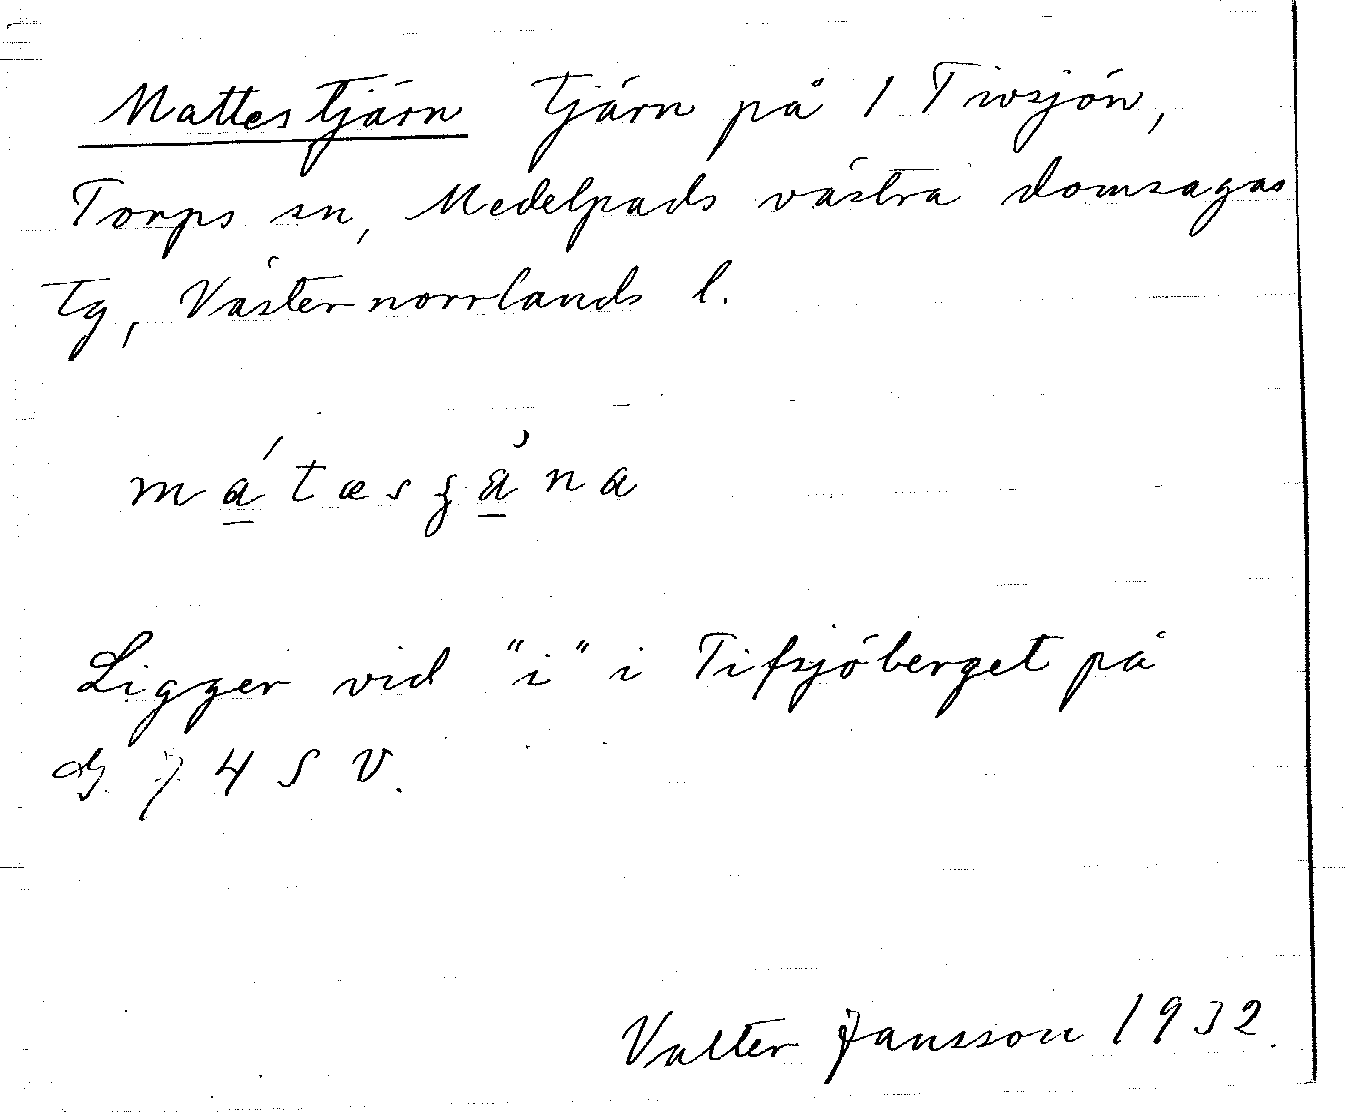 Mattestjärn Tjärn på 1 Tivsjön,
Torps sn, Medelpads västra domsagas
tg, Västernorrlands l.
Ligger vid "i" i Tifsjöberget på
74 SV.
Valter Jansson 1932.